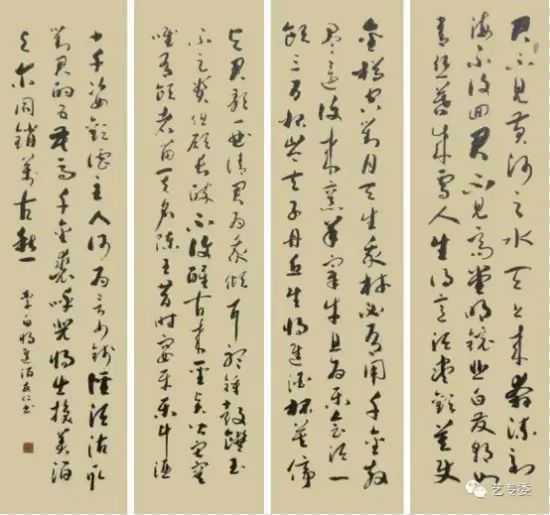 君不見黄河之水天上來奔流到
海不復回君不見高堂明鏡悲白髮朝如
青絲暮成雪人生得意須盡歡莫使
金樽空對月天生我材必有用千金散
盡還復來烹羊宰牛且為樂會須一
飲三百杯岑夫子丹丘生將進酒杯莫停
與君歌一曲請君為我傾耳聽鐘鼓饌玉
不足貴但願長醉不復醒古來聖賢皆寂寞
唯有飲者留其名陳王昔時宴平樂斗酒
十千恣歡謔主人何為言少錢徑須沽取
對君酌五花馬千金裘呼兒將出換美酒
與爾同銷萬古愁
李白將進酒友仁書
艺专委